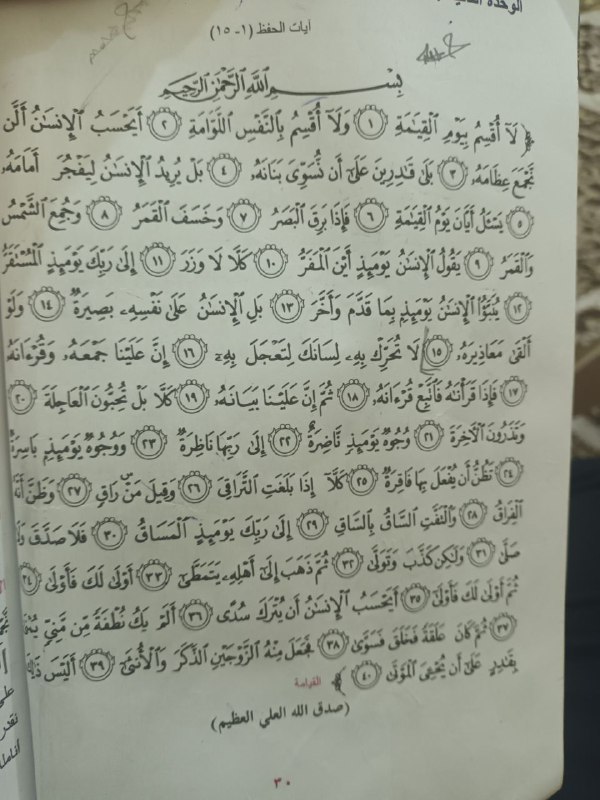 آيات الحفظ (١-١٥)
بِسْمِ ٱللَّهِ ٱلرَّحْمَٰنِ ٱلرَّحِيمِ
﴿ لَآ أُقْسِمُ بِيَوْمِ ٱلْقِيَٰمَةِ ١ وَلَآ أُقْسِمُ بِٱلنَّفْسِ ٱللَّوَّامَةِ ٢ أَيَحْسَبُ ٱلْإِنسَٰنُ أَلَّن
نَّجْمَعَ عِظَامَهُۥ ٣ بَلَىٰ قَٰدِرِينَ عَلَىٰٓ أَن نُّسَوِّىَ بَنَانَهُۥ ٤ بَلْ يُرِيدُ ٱلْإِنسَٰنُ لِيَفْجُرَ أَمَامَهُۥ
٥ يَسْـَٔلُ أَيَّانَ يَوْمُ ٱلْقِيَٰمَةِ ٦ فَإِذَا بَرِقَ ٱلْبَصَرُ ٧ وَخَسَفَ ٱلْقَمَرُ ٨ وَجُمِعَ ٱلشَّمْسُ
وَٱلْقَمَرُ ٩ يَقُولُ ٱلْإِنسَٰنُ يَوْمَئِذٍ أَيْنَ ٱلْمَفَرُّ ١٠ كَلَّا لَا وَزَرَ ١١ إِلَىٰ رَبِّكَ يَوْمَئِذٍ ٱلْمُسْتَقَرُّ
١٢ يُنَبَّؤُا۟ ٱلْإِنسَٰنُ يَوْمَئِذٍۭ بِمَا قَدَّمَ وَأَخَّرَ ١٣ بَلِ ٱلْإِنسَٰنُ عَلَىٰ نَفْسِهِۦ بَصِيرَةٌ ١٤ وَلَوْ
أَلْقَىٰ مَعَاذِيرَهُۥ ١٥ لَا تُحَرِّكْ بِهِۦ لِسَانَكَ لِتَعْجَلَ بِهِۦٓ ١٦ إِنَّ عَلَيْنَا جَمْعَهُۥ وَقُرْءَانَهُۥ
١٧ فَإِذَا قَرَأْنَٰهُ فَٱتَّبِعْ قُرْءَانَهُۥ ١٨ ثُمَّ إِنَّ عَلَيْنَا بَيَانَهُۥ ١٩ كَلَّا بَلْ تُحِبُّونَ ٱلْعَاجِلَةَ ٢٠
وَتَذَرُونَ ٱلْءَاخِرَةَ ٢١ وُجُوهٌ يَوْمَئِذٍ نَّاضِرَةٌ ٢٢ إِلَىٰ رَبِّهَا نَاظِرَةٌ ٢٣ وَوُجُوهٌ يَوْمَئِذٍۭ بَاسِرَةٌ
٢٤ تَظُنُّ أَن يُفْعَلَ بِهَا فَاقِرَةٌ ٢٥ كَلَّآ إِذَا بَلَغَتِ ٱلتَّرَاقِىَ ٢٦ وَقِيلَ مَنْ رَاقٍ ٢٧ وَظَنَّ أَنَّهُ
ٱلْفِرَاقُ ٢٨ وَٱلْتَفَّتِ ٱلسَّاقُ بِٱلسَّاقِ ٢٩ إِلَىٰ رَبِّكَ يَوْمَئِذٍ ٱلْمَسَاقُ ٣٠ فَلَا صَدَّقَ وَلَا
صَلَّىٰ ٣١ وَلَٰكِن كَذَّبَ وَتَوَلَّىٰ ٣٢ ثُمَّ ذَهَبَ إِلَىٰٓ أَهْلِهِۦ يَتَمَطَّىٰٓ ٣٣ أَوْلَىٰ لَكَ فَأَوْلَىٰ ٣٤
ثُمَّ أَوْلَىٰ لَكَ فَأَوْلَىٰٓ ٣٥ أَيَحْسَبُ ٱلْإِنسَٰنُ أَن يُتْرَكَ سُدًى ٣٦ أَلَمْ يَكُ نُطْفَةً مِّن مَّنِىٍّ يُمْنَىٰ
٣٧ ثُمَّ كَانَ عَلَقَةً فَخَلَقَ فَسَوَّىٰ ٣٨ فَجَعَلَ مِنْهُ ٱلزَّوْجَيْنِ ٱلذَّكَرَ وَٱلْأُنثَىٰٓ ٣٩ أَلَيْسَ ذَٰلِكَ
بِقَٰدِرٍ عَلَىٰٓ أَن يُحْـِۧىَ ٱلْمَوْتَىٰ ٤٠ ﴾ القيامة
(صدق الله العلي العظيم)
٣٠